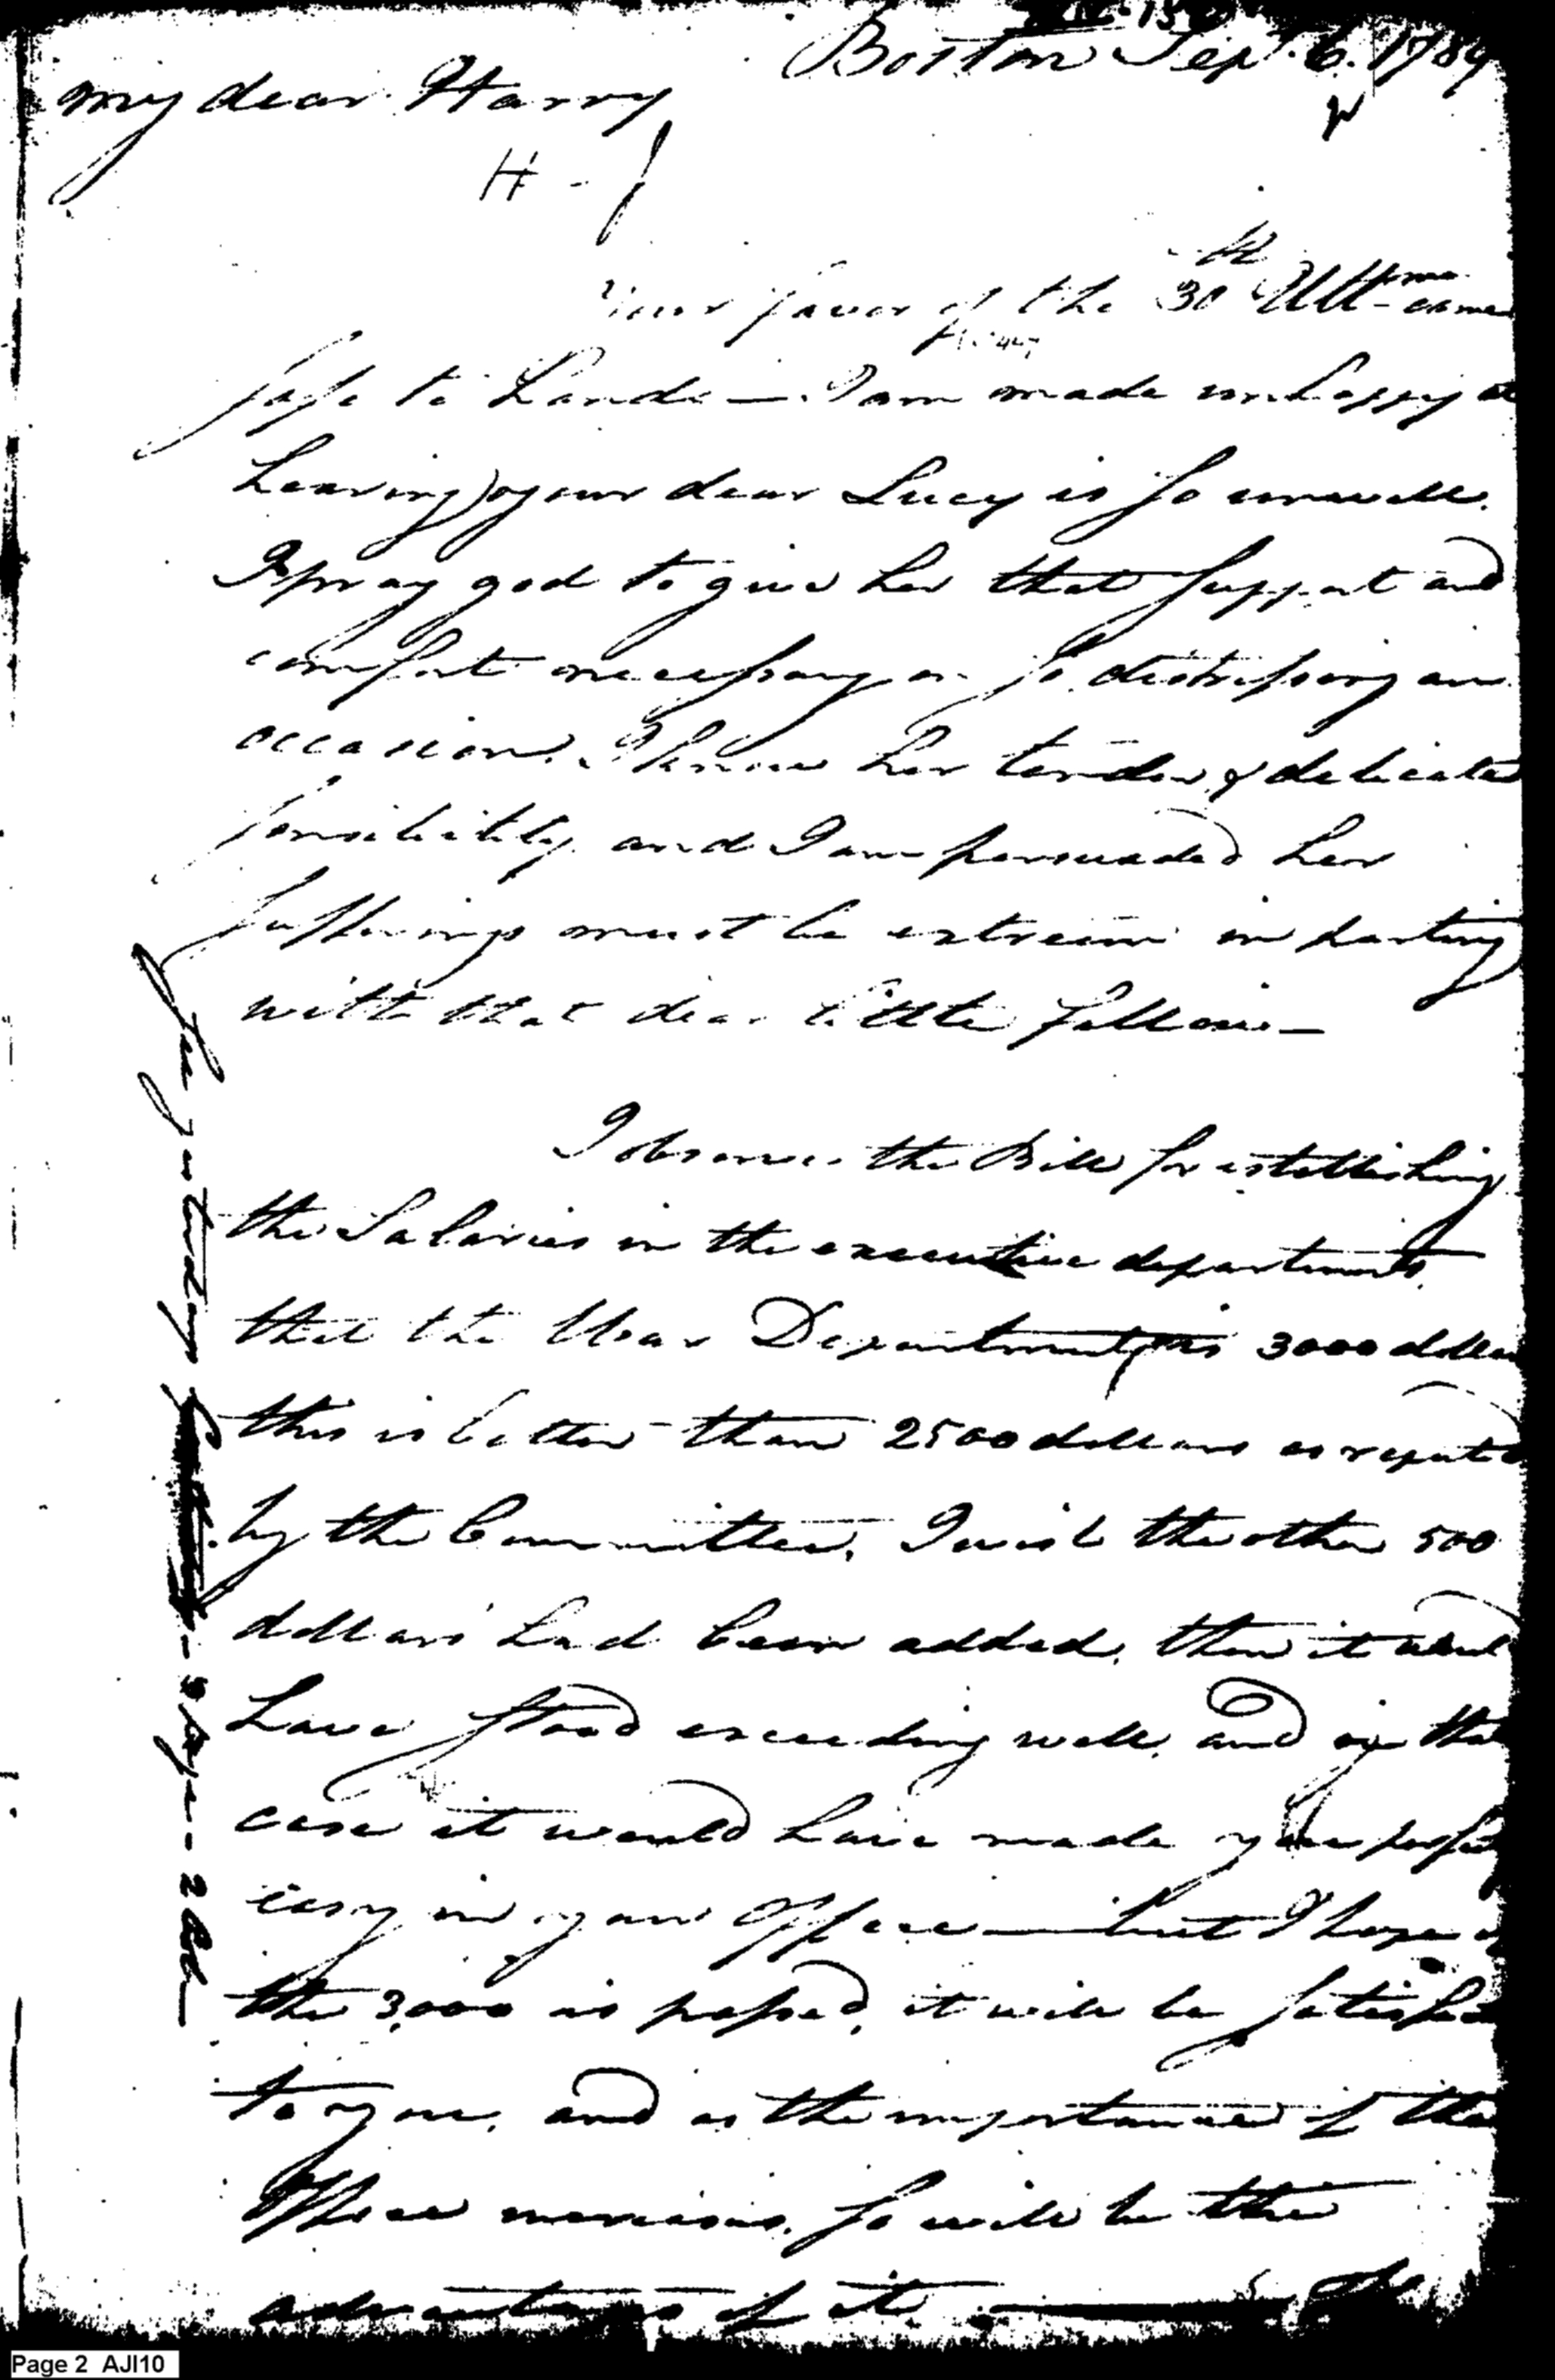 Boston Sept. 6. 1789
my dear Harry
H - J
Your favor of the 30th Ultmo came
safe to hand — I am made unhappy at
hearing your dear Lucy is so unwell.
I pray god to give her that support and
comfort necessary on so distressing an
occasion. I know her tender & delicate
sensibility and I am persuaded her
sufferings must be extreem in parting
with that dear little fellow —
I observe the Bill for establishing
the Salaries in the executive departments.
that the War Department is 3000 dollars
this is better than 2500 dollars as reported
by the Committee. I wish the other 500
dollars had been added, then it would
have stood exceeding well, and in that
case it would have made you perfectly
easy in your Office — but I hope if
the 3,000 is passed, it will be satisfac
to you, and as the importance of the
Office increases, so will be the
advantages of it. — The
yesterday
Page 2 AJI10